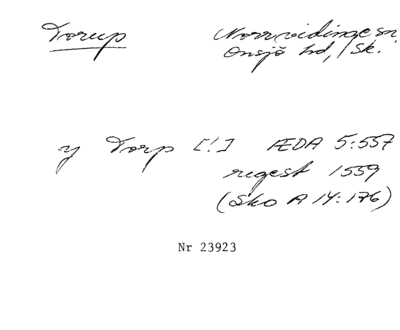 Torup Norrvidinge sn,
Onsjö hd, Sk.
y Torp [!] ÆDA 5:557
regest 1559
(Sko A 14:176)
Nr 23923